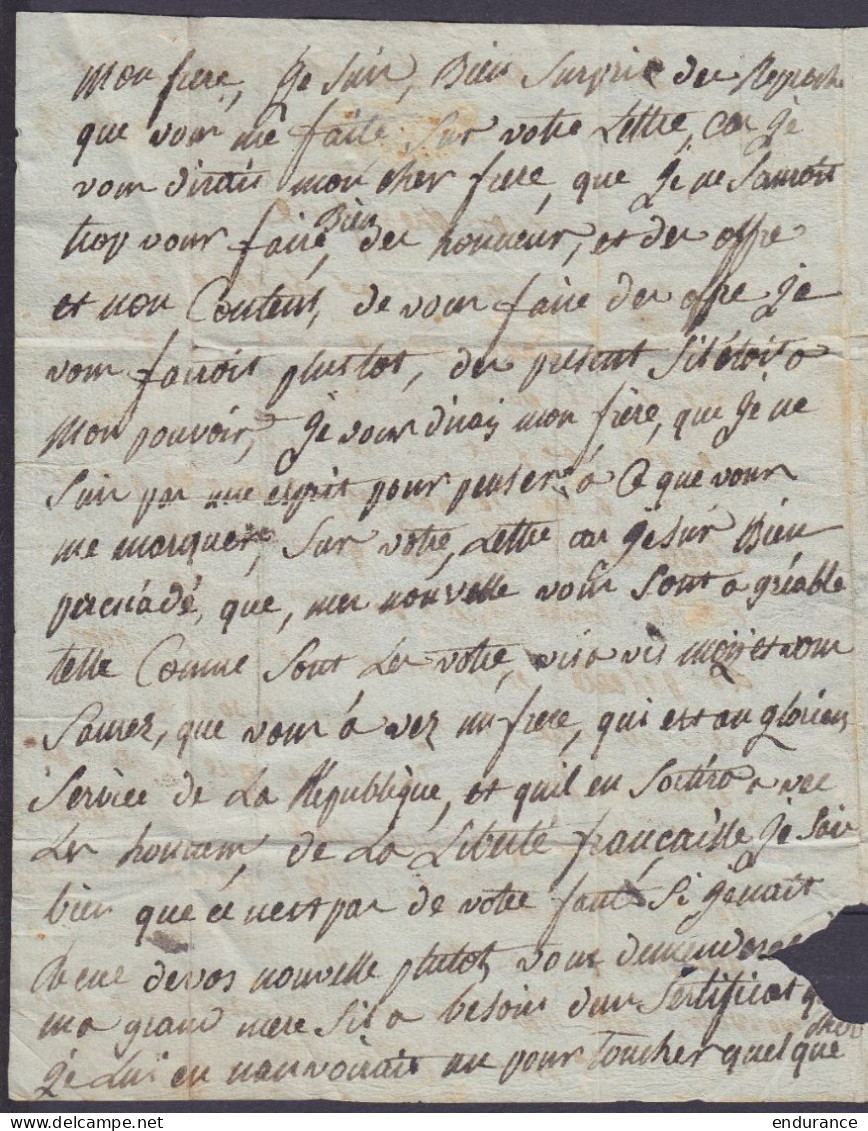 Mon frere, Je suis, Bien Surpris des Reproche
que vous me faite Sur votre Lettre, car Je
vous dirais mon cher frere, que Je ne Saurois
trop vous faire, Bien des honneur, et des offre
et non Content, de vous faire des offre Je
vous fairois plustot, des present Sil étoit a
Mon pouvoir, Je vous diray mon frere, que Je ne
Suis pas une esprit pour penser, a Ce que vous
me marquer, Sur votre, Lettre car Je suis Bien
persuadé, que, mes nouvelle vous Sont a gréable
telle Comme Sont Les votre, vis a vis moy et vous
Saurez, que vous a vez un frere, qui est au glorieux
Service de La Republique, et quil en Sortira a vec
Les honneur, de La Liberté françaisse, Je sais
bien que ce nest pas de votre faute Si Jenait
Recue de vos nouvelle plutot, vous demenderez
ma grand mere Sil a besoin dun Sertificat
Je Lui en nanvoirais un pour Toucher quelque
chose